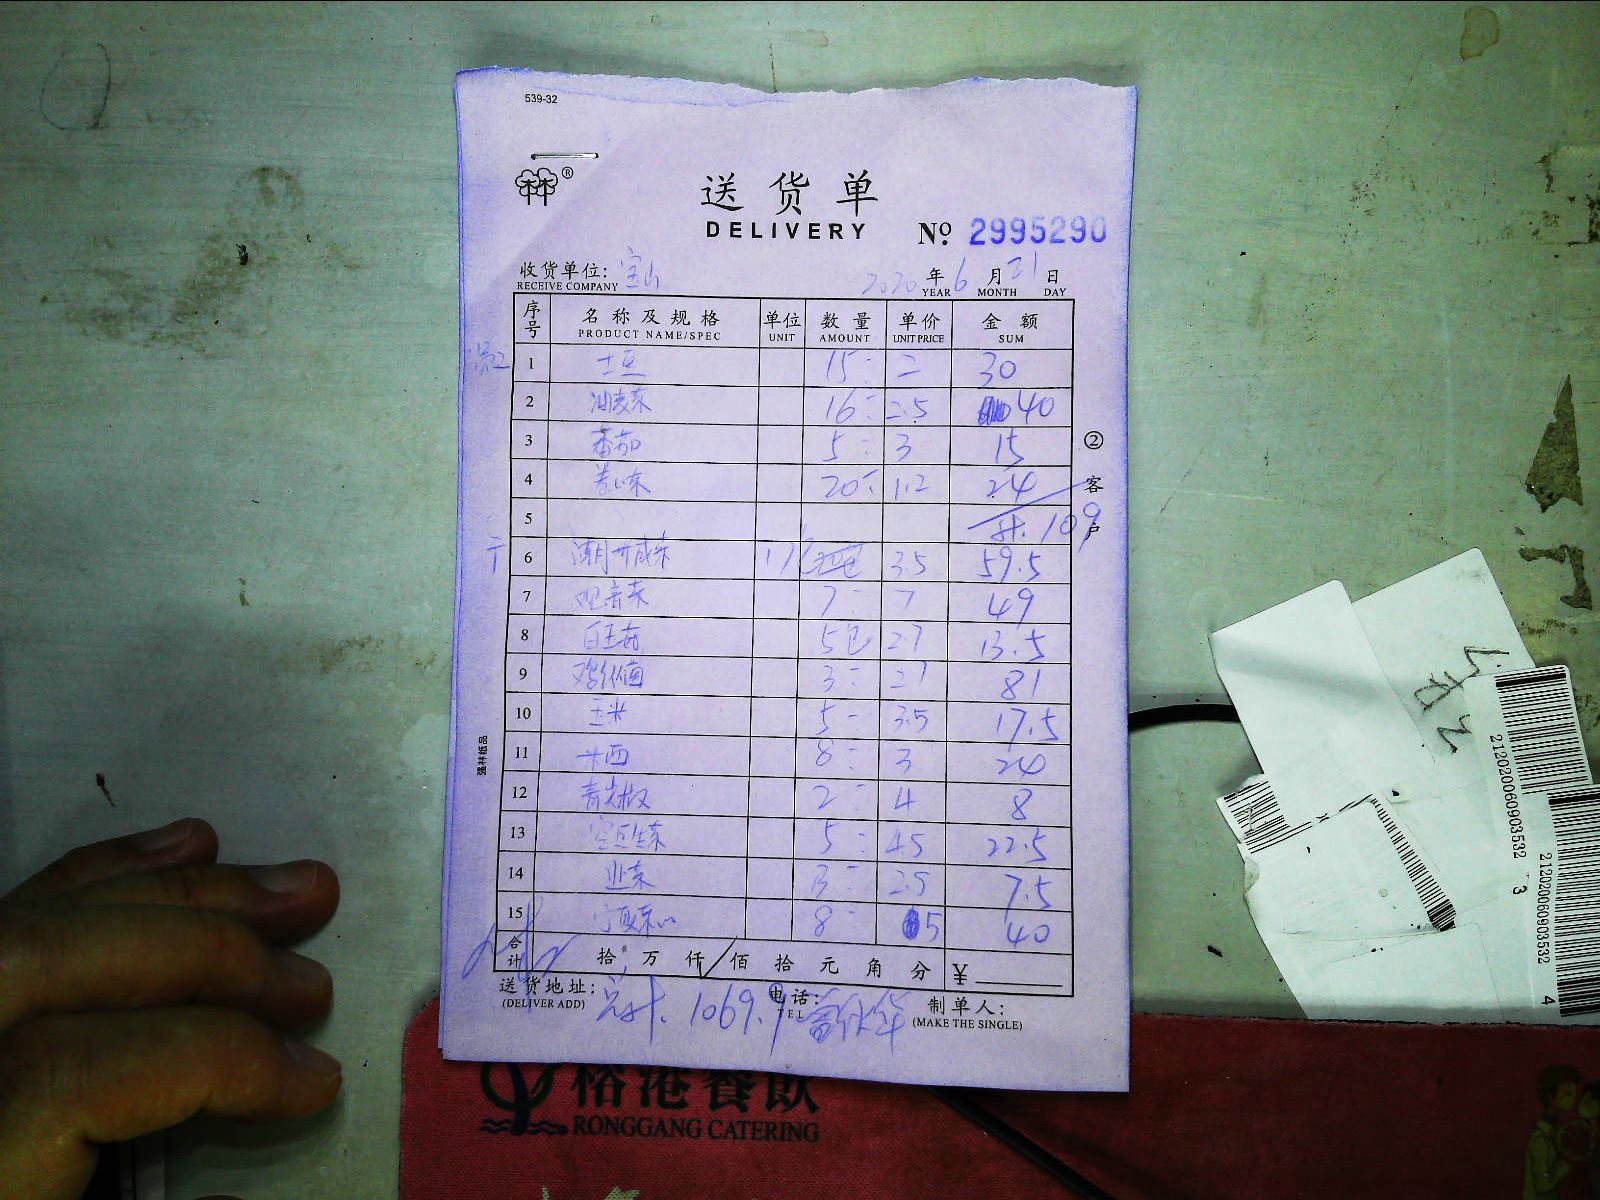 539-32
林®
送货单
DELIVERY
№ 2995290
收货单位: 宝山
RECEIVE COMPANY
2020 年 6 月 21 日
YEAR MONTH DAY
序号 名称及规格 单位 数量 单价 金额
PRODUCT NAME/SPEC UNIT AMOUNT UNIT PRICE SUM
1 土豆 15 : 2 30
2 油麦菜 16 : 2.5 40
3 番茄 5 : 3 15
4 20 : 1.2 24
5 计. 109
6 17 3.5 59.5
7 观音菜 7 : 7 49
8 白玉菇 5包 2.7 13.5
9 3 : 27 81
10 玉米 5 : 3.5 17.5
11 8 : 3 24
12 青尖椒 2 : 4 8
13 5 : 4.5 22.5
14 韭菜 3 : 2.5 7.5
15 8 : 5 40
合计 拾 万 仟 佰 拾 元 角 分 ¥
送货地址:
(DELIVER ADD)
电话:
TEL
制单人:
(MAKE THE SINGLE)
1069.9
② 客户
强林纸品
裕港餐飲
RONGGANG CATERING
2120200609035323
2120200609035324